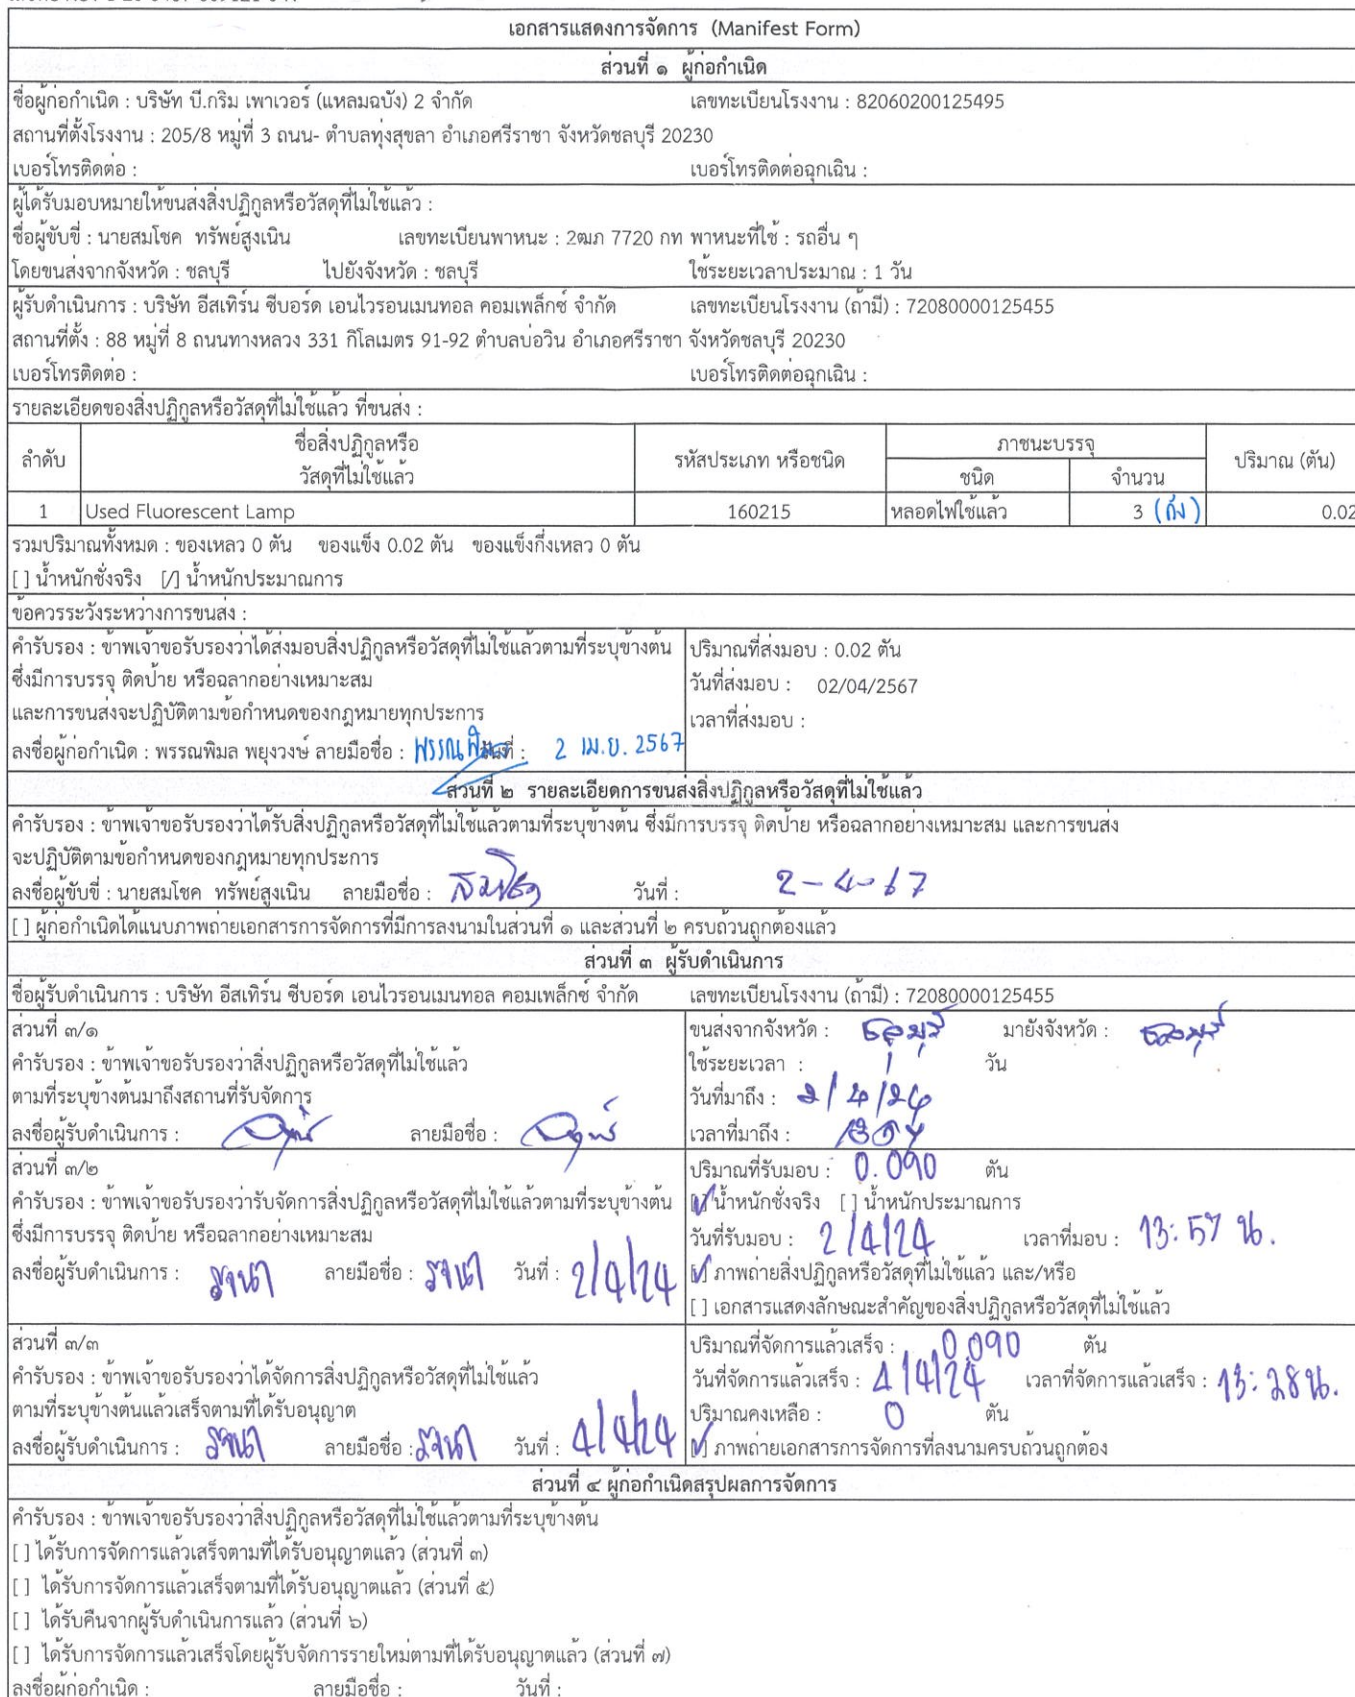 เอกสารแสดงการจัดการ (Manifest Form)
ส่วนที่ ๑ ผู้ก่อกำเนิด
ชื่อผู้ก่อกำเนิด : บริษัท บี.กริม เพาเวอร์ (แหลมฉบัง) 2 จำกัด เลขทะเบียนโรงงาน : 82060200125495
สถานที่ตั้งโรงงาน : 205/8 หมู่ที่ 3 ถนน- ตำบลทุ่งสุขลา อำเภอศรีราชา จังหวัดชลบุรี 20230
เบอร์โทรติดต่อ : เบอร์โทรติดต่อฉุกเฉิน :
ผู้ได้รับมอบหมายให้ขนส่งสิ่งปฏิกูลหรือวัสดุที่ไม่ใช้แล้ว :
ชื่อผู้ขับขี่ : นายสมโชค ทรัพย์สูงเนิน เลขทะเบียนพาหนะ : 2ฒภ 7720 กท พาหนะที่ใช้ : รถอื่น ๆ
โดยขนส่งจากจังหวัด : ชลบุรี ไปยังจังหวัด : ชลบุรี ใช้ระยะเวลาประมาณ : 1 วัน
ผู้รับดำเนินการ : บริษัท อีสเทิร์น ซีบอร์ด เอนไวรอนเมนทอล คอมเพล็กซ์ จำกัด เลขทะเบียนโรงงาน (ถ้ามี) : 72080000125455
สถานที่ตั้ง : 88 หมู่ที่ 8 ถนนทางหลวง 331 กิโลเมตร 91-92 ตำบลบ่อวิน อำเภอศรีราชา จังหวัดชลบุรี 20230
เบอร์โทรติดต่อ : เบอร์โทรติดต่อฉุกเฉิน :
รายละเอียดของสิ่งปฏิกูลหรือวัสดุที่ไม่ใช้แล้ว ที่ขนส่ง :
ลำดับ ชื่อสิ่งปฏิกูลหรือ วัสดุที่ไม่ใช้แล้ว รหัสประเภท หรือชนิด ภาชนะบรรจุ ปริมาณ (ตัน)
ชนิด จำนวน
1 Used Fluorescent Lamp 160215 หลอดไฟใช้แล้ว 3 (ถัง) 0.02
รวมปริมาณทั้งหมด : ของเหลว 0 ตัน ของแข็ง 0.02 ตัน ของแข็งกึ่งเหลว 0 ตัน
[ ] น้ำหนักชั่งจริง [/] น้ำหนักประมาณการ
ข้อควรระวังระหว่างการขนส่ง :
คำรับรอง : ข้าพเจ้าขอรับรองว่าได้ส่งมอบสิ่งปฏิกูลหรือวัสดุที่ไม่ใช้แล้วตามที่ระบุข้างต้น ปริมาณที่ส่งมอบ : 0.02 ตัน
ซึ่งมีการบรรจุ ติดป้าย หรือฉลากอย่างเหมาะสม วันที่ส่งมอบ : 02/04/2567
และการขนส่งจะปฏิบัติตามข้อกำหนดของกฎหมายทุกประการ เวลาที่ส่งมอบ :
ลงชื่อผู้ก่อกำเนิด : พรรณพิมล พยุงวงษ์ ลายมือชื่อ : พรรณพิมล วันที่ : 2 เม.ย. 2567
ส่วนที่ ๒ รายละเอียดการขนส่งสิ่งปฏิกูลหรือวัสดุที่ไม่ใช้แล้ว
คำรับรอง : ข้าพเจ้าขอรับรองว่าได้รับสิ่งปฏิกูลหรือวัสดุที่ไม่ใช้แล้วตามที่ระบุข้างต้น ซึ่งมีการบรรจุ ติดป้าย หรือฉลากอย่างเหมาะสม และการขนส่ง
จะปฏิบัติตามข้อกำหนดของกฎหมายทุกประการ
ลงชื่อผู้ขับขี่ : นายสมโชค ทรัพย์สูงเนิน ลายมือชื่อ : สมโชค วันที่ : 2-4-67
[ ] ผู้ก่อกำเนิดได้แนบภาพถ่ายเอกสารการจัดการที่มีการลงนามในส่วนที่ ๑ และส่วนที่ ๒ ครบถ้วนถูกต้องแล้ว
ส่วนที่ ๓ ผู้รับดำเนินการ
ชื่อผู้รับดำเนินการ : บริษัท อีสเทิร์น ซีบอร์ด เอนไวรอนเมนทอล คอมเพล็กซ์ จำกัด เลขทะเบียนโรงงาน (ถ้ามี) : 72080000125455
ส่วนที่ ๓/๑ ขนส่งจากจังหวัด : ชลบุรี มายังจังหวัด : ชลบุรี
คำรับรอง : ข้าพเจ้าขอรับรองว่าสิ่งปฏิกูลหรือวัสดุที่ไม่ใช้แล้ว ใช้ระยะเวลา : 1 วัน
ตามที่ระบุข้างต้นมาถึงสถานที่รับจัดการ วันที่มาถึง : 2/4/24
ลงชื่อผู้รับดำเนินการ : ลายมือชื่อ : เวลาที่มาถึง :
ส่วนที่ ๓/๒ ปริมาณที่รับมอบ : 0.090 ตัน
คำรับรอง : ข้าพเจ้าขอรับรองว่ารับจัดการสิ่งปฏิกูลหรือวัสดุที่ไม่ใช้แล้วตามที่ระบุข้างต้น [✓] น้ำหนักชั่งจริง [ ] น้ำหนักประมาณการ
ซึ่งมีการบรรจุ ติดป้าย หรือฉลากอย่างเหมาะสม วันที่รับมอบ : 2/4/24 เวลาที่มอบ : 13:57 น.
ลงชื่อผู้รับดำเนินการ : รจนา ลายมือชื่อ : รจนา วันที่ : 2/4/24 [✓] ภาพถ่ายสิ่งปฏิกูลหรือวัสดุที่ไม่ใช้แล้ว และ/หรือ
[ ] เอกสารแสดงลักษณะสำคัญของสิ่งปฏิกูลหรือวัสดุที่ไม่ใช้แล้ว
ส่วนที่ ๓/๓ ปริมาณที่จัดการแล้วเสร็จ : 0.090 ตัน
คำรับรอง : ข้าพเจ้าขอรับรองว่าได้จัดการสิ่งปฏิกูลหรือวัสดุที่ไม่ใช้แล้ว วันที่จัดการแล้วเสร็จ : 4/4/24 เวลาที่จัดการแล้วเสร็จ : 13:28 น.
ตามที่ระบุข้างต้นแล้วเสร็จตามที่ได้รับอนุญาต ปริมาณคงเหลือ : 0 ตัน
ลงชื่อผู้รับดำเนินการ : รจนา ลายมือชื่อ : รจนา วันที่ : 4/4/24 [✓] ภาพถ่ายเอกสารการจัดการที่ลงนามครบถ้วนถูกต้อง
ส่วนที่ ๔ ผู้ก่อกำเนิดสรุปผลการจัดการ
คำรับรอง : ข้าพเจ้าขอรับรองว่าสิ่งปฏิกูลหรือวัสดุที่ไม่ใช้แล้วตามที่ระบุข้างต้น
[ ] ได้รับการจัดการแล้วเสร็จตามที่ได้รับอนุญาตแล้ว (ส่วนที่ ๓)
[ ] ได้รับการจัดการแล้วเสร็จตามที่ได้รับอนุญาตแล้ว (ส่วนที่ ๕)
[ ] ได้รับคืนจากผู้รับดำเนินการแล้ว (ส่วนที่ ๖)
[ ] ได้รับการจัดการแล้วเสร็จโดยผู้รับจัดการรายใหม่ตามที่ได้รับอนุญาตแล้ว (ส่วนที่ ๗)
ลงชื่อผู้ก่อกำเนิด : ลายมือชื่อ : วันที่ :